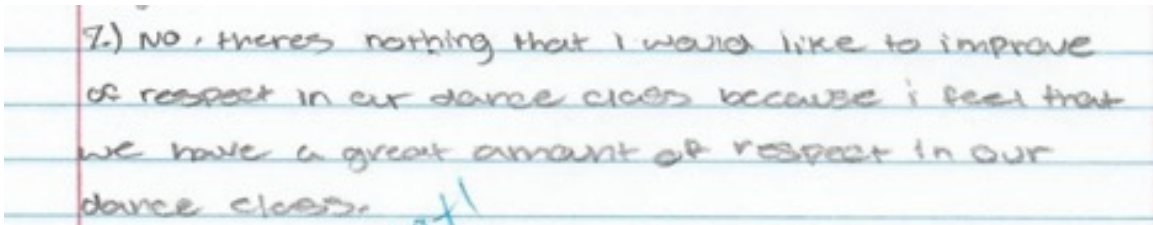 7.) No, theres nothing that I would like to improve
of respect in our dance class because i feel that
we have a great amount of respect in our
dance class.